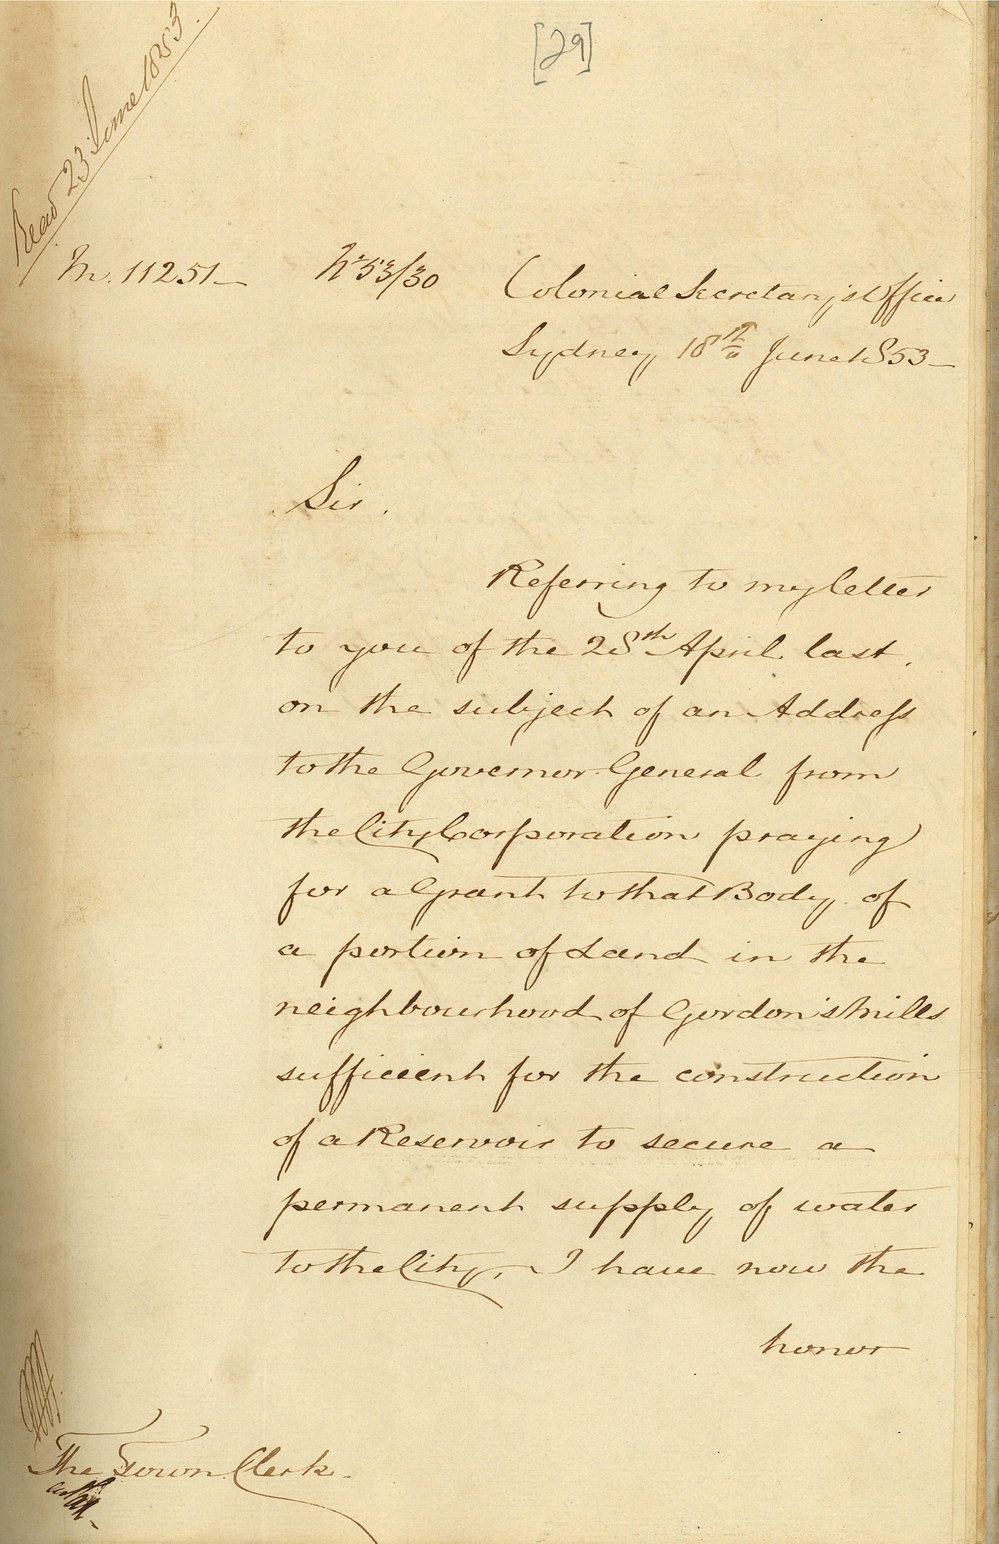 [29]
Read 23 June 1853.
No. 53/30
Colonial Secretary's Office
Sydney 18th June 1853
Sir.
Referring to my letter
to you of the 28th April last,
on the subject of an Address
to the Governor General from
the City Corporation praying
for a Grant to that Body of
a portion of Land in the
neighbourhood of Gordon's Mills
sufficient for the construction
of a Reservoir to secure a
permanent supply of water
to the City, I have now the
honor
The Town Clerk.